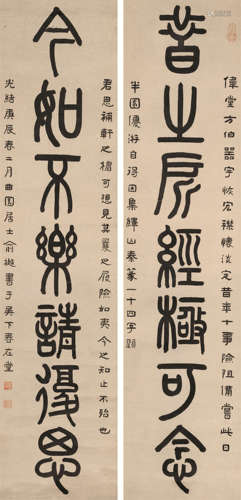 偉堂方伯器宇恢宏襟懷淡定昔年十事險阻備嘗此日
昔之所經極可念
半園優游自得因集繹山秦篆一十四字題
君思補軒之楹可想見其曩之履險如夷今之知止不殆也
今如不樂請復思
光緒庚辰春二月曲園居士俞樾書于吳下春在堂